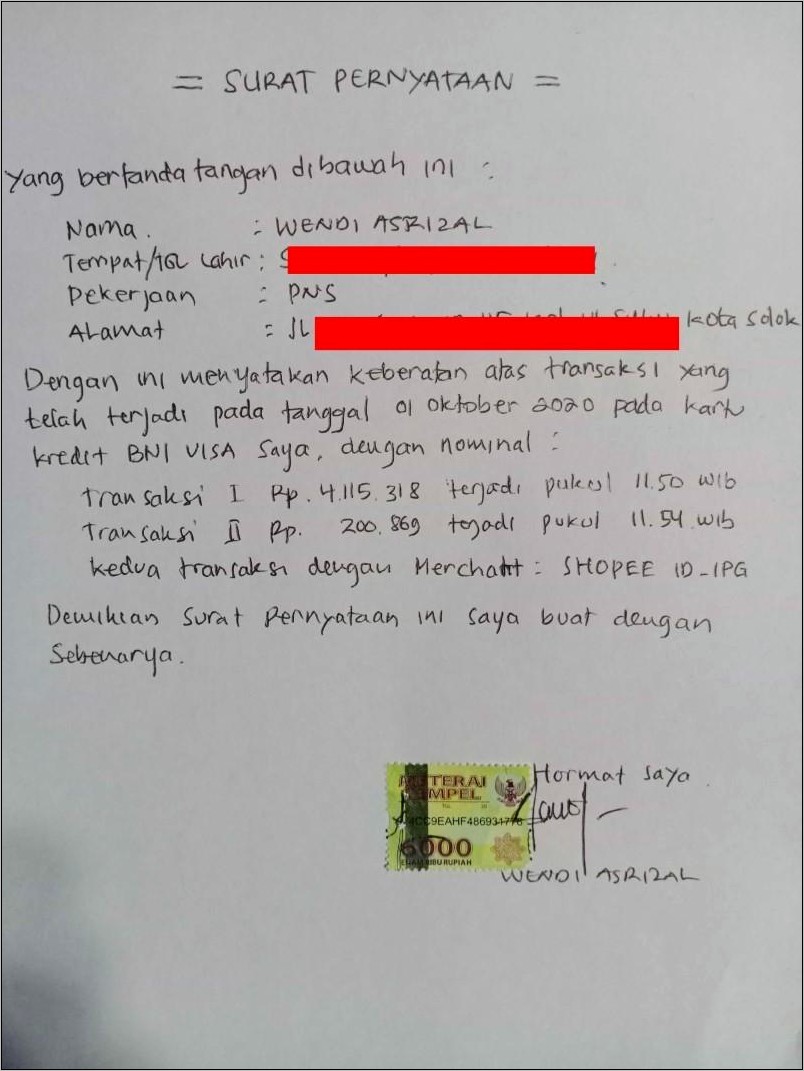 = SURAT PERNYATAAN =
Yang bertanda tangan dibawah ini :
Nama. : WENDI ASRIZAL
Tempat/TGL Lahir : S
Pekerjaan : PNS
Alamat : JL Kota Solok
Dengan ini menyatakan keberatan atas transaksi yang
telah terjadi pada tanggal 01 Oktober 2020 pada kartu
kredit BNI VISA Saya, dengan nominal :
Transaksi I Rp. 4.115.318 terjadi pukul 11.50 WIB
Transaksi II Rp. 200.869 terjadi pukul 11.54 WIB
Kedua transaksi dengan Merchant : SHOPEE ID_IPG
Demikian Surat Pernyataan ini saya buat dengan
Sebenarya.
Hormat Saya
METERAI
TEMPEL
CC9EAHF486931776
6000
ENAM RIBU RUPIAH
WENDI ASRIZAL